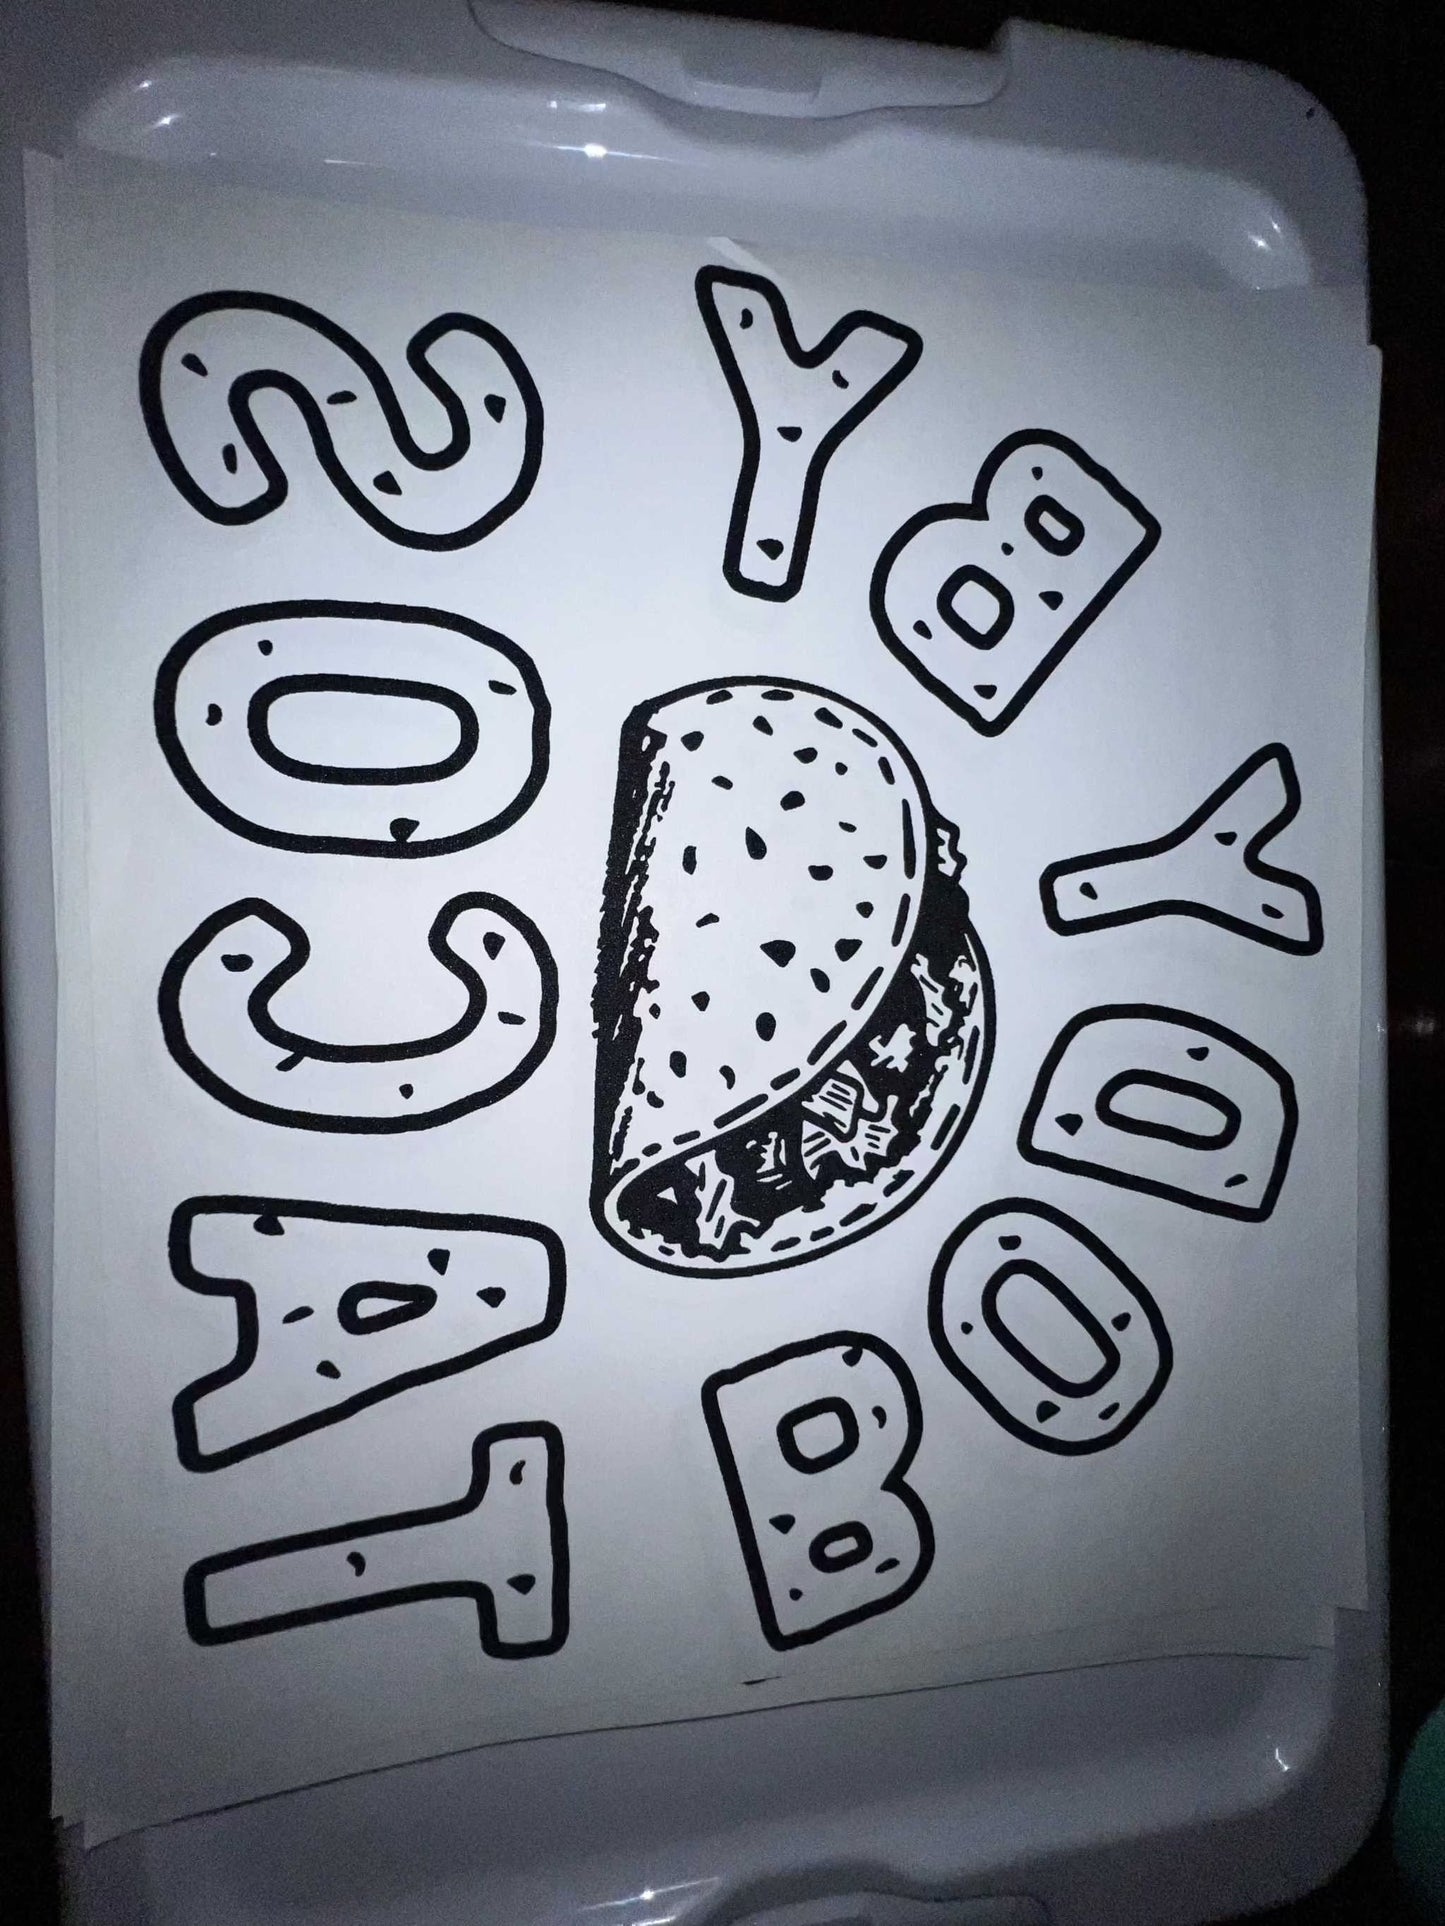 BODY BY
TACOS